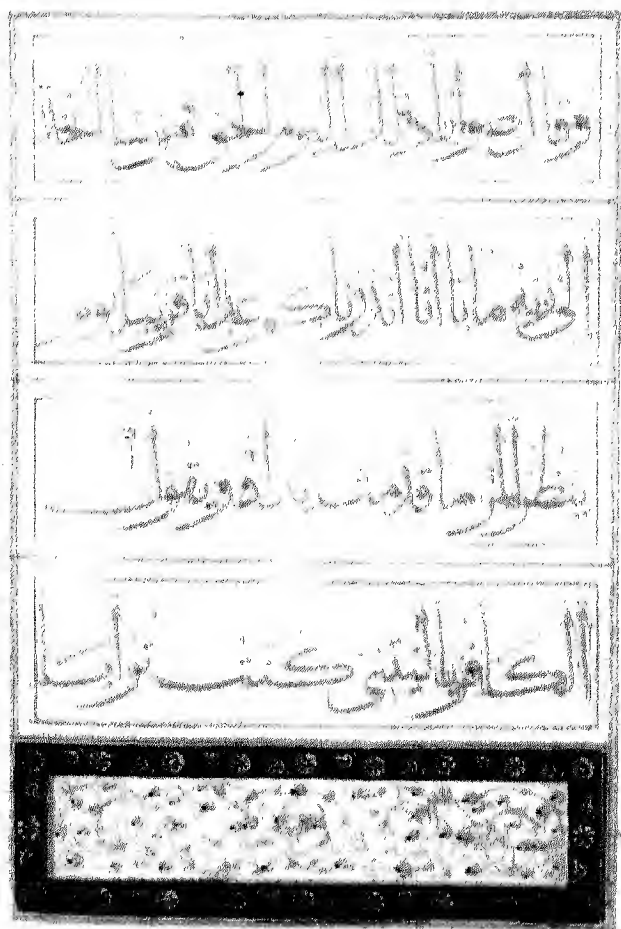 وقال صوابا ذلك اليوم الحق فمن شا اتخذ
الى ربه مابا انا انذرناكم عذابا قريبا يوم
ينظر المر ما قدمت يداه ويقول
الكافر ياليتني كنت ترابا